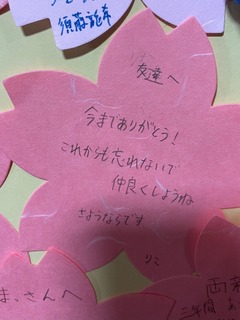 友達へ
今までありがとう！
これからも忘れないで
仲良くしようね
さようならです
りこ
さんへ
二年間